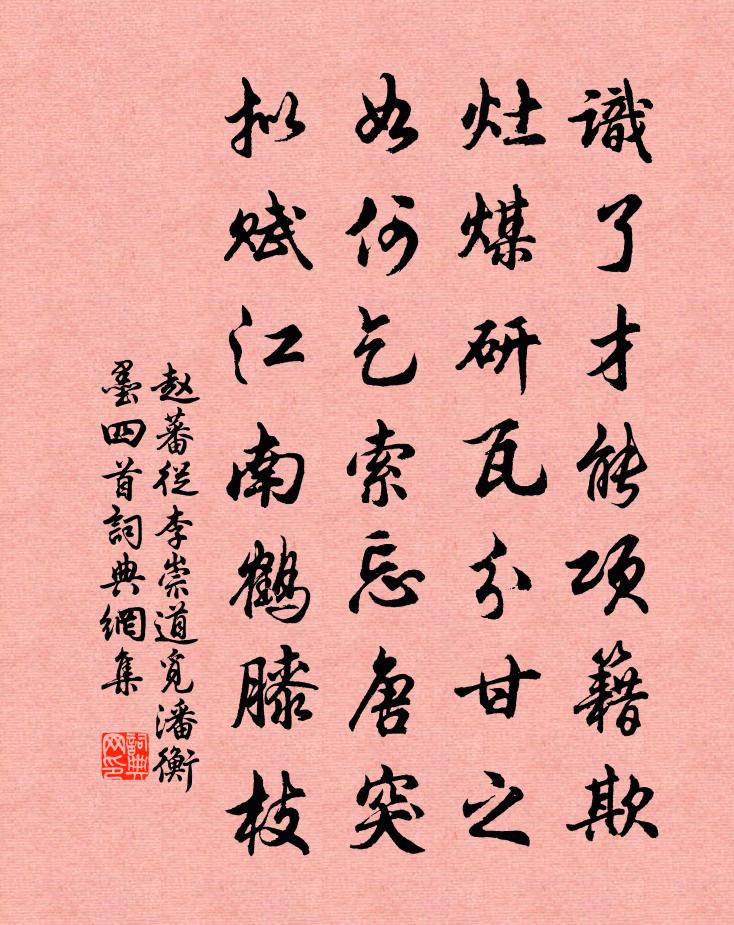 識了才能项籍欺
灶煤研瓦分甘之
如何乞索忘唐突
拟赋江南鹤膝枝
赵蕃從李崇道觅潘衡
墨四首詞典網集
詞典网印